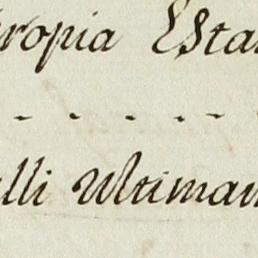 ropia Esta
lli Ultiman